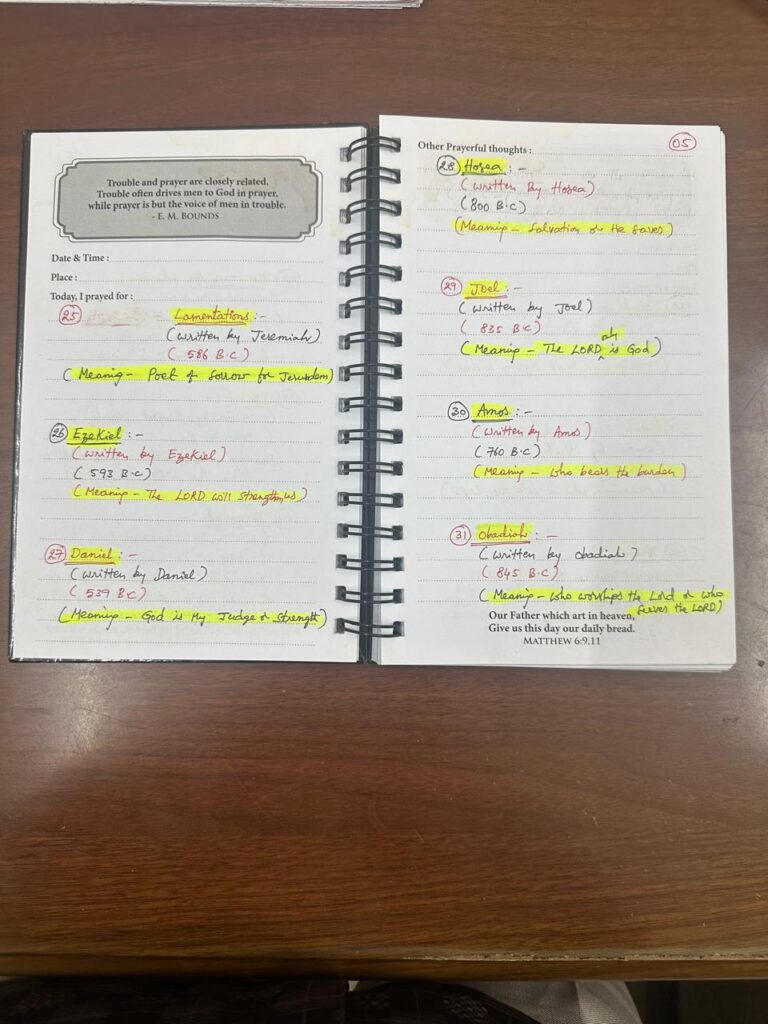 Trouble and prayer are closely related.
Trouble often drives men to God in prayer,
while prayer is but the voice of men in trouble.
- E. M. BOUNDS
Date & Time :
Place :
Today, I prayed for :
25 Lamentations :-
(written by Jeremiah)
( 586 B.C)
( Meanig - Poet of Sorrow for Jerusalem)
26 Ezekiel : -
(written by Ezekiel)
( 593 B.C)
(Meaning - The LORD will strengthen us)
27 Daniel : -
(written by Daniel)
( 539 BC)
(Meaning - God is My Judge or Strength)
Other Prayerful thoughts :
05
28 Hosea : -
(written By Hosea)
(800 B.C)
(Meaning - Salvation or He saves)
29 Joel : -
(written by Joel)
( 835 BC)
(Meaning - The LORD is God)
30 Amos : -
(written by Amos)
(760 B.C)
(Meaning - who bears the burden)
31 Obadiah : -
(written by obadiah)
( 845 B.C)
(Meaning - who worships the Lord or who
serves the LORD)
Our Father which art in heaven,
Give us this day our daily bread.
MATTHEW 6:9,11